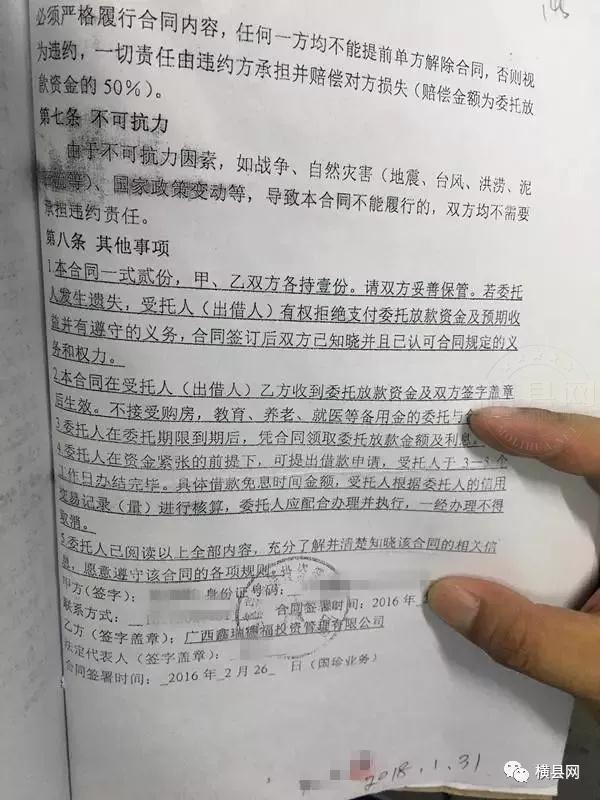 必须严格履行合同内容，任何一方均不能提前单方解除合同，否则视
为违约，一切责任由违约方承担并赔偿对方损失（赔偿金额为委托放
款资金的50%）。
第七条 不可抗力
由于不可抗力因素，如战争、自然灾害（地震、台风、洪涝、泥
等）、国家政策变动等，导致本合同不能履行的，双方均不需要
承担违约责任。
第八条 其他事项
1.本合同一式贰份，甲、乙双方各持壹份。请双方妥善保管。若委托
人发生遗失，受托人（出借人）有权拒绝支付委托放款资金及预期收
益并有遵守的义务，合同签订后双方已知晓并且已认可合同规定的义
务和权力。
2.本合同在受托人（出借人）乙方收到委托放款资金及双方签字盖章
后生效。不接受购房，教育、养老、就医等备用金的委托与
3.委托人在委托期限到期后，凭合同领取委托放款金额及利息
4.委托人在资金紧张的前提下，可提出借款申请，受托人于 3-5 个
工作日办结完毕。具体借款免息时间金额，受托人根据委托人的信用
交易记录（量）进行核算，委托人应配合办理并执行，一经办理不得
取消。
5.委托人已阅读以上全部内容，充分了解并清楚知晓该合同的相关信
息，愿意遵守该合同的各项规则。
甲方(签字)： 身份证号码：
联系方式： 合同签署时间：2016年
乙方（签字盖章）：广西鑫瑞德福投资管理有限公司
法定代表人（签字盖章）：
合同签署时间：_2016 年_2 月 26_ 日（闲珍业务）
2018.1.31
横县网